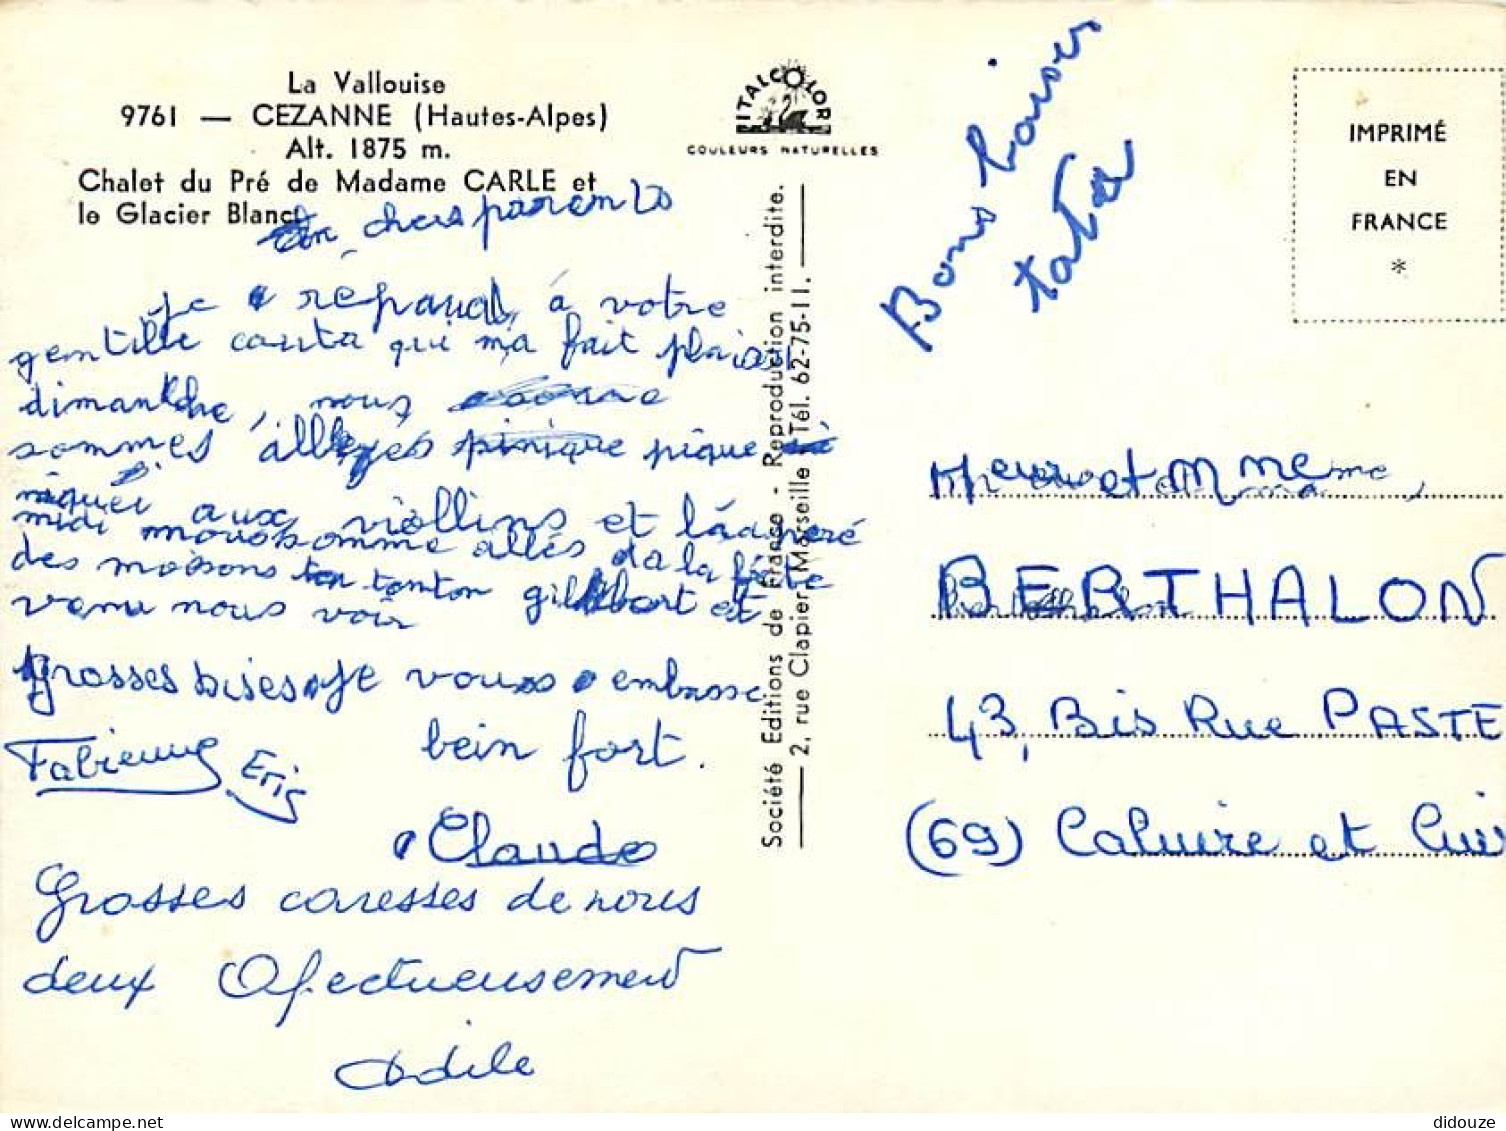 La Vallouise
9761 — CEZANNE (Hautes-Alpes)
Alt. 1875 m.
Chalet du Pré de Madame CARLE et
le Glacier Blanc
chers parents
je à votre
gentille carta qui ma fait plaisir
dimanche, nous
sommes allés pique
niquer aux viollins et l'aaperé
midi nous somme allés da la fête
des moisons tonton gilbert et
venu nous voir
grosses bises je vous embasse
bein fort.
Fabienne Eric
Claude
Grosses caresses de nous
deux Afectueusement
Odile
ITALCOLOR
COULEURS NATURELLES
Société Editions de France - Reproduction interdite.
2, rue Clapier Marseille Tél. 62-75-11.
Bons baisers
tata
IMPRIMÉ
EN
FRANCE
*
et Mme
BERTHALON
43, Bis Rue PASTE
(69) Caluire et Cuir
delcampe.net
didouze